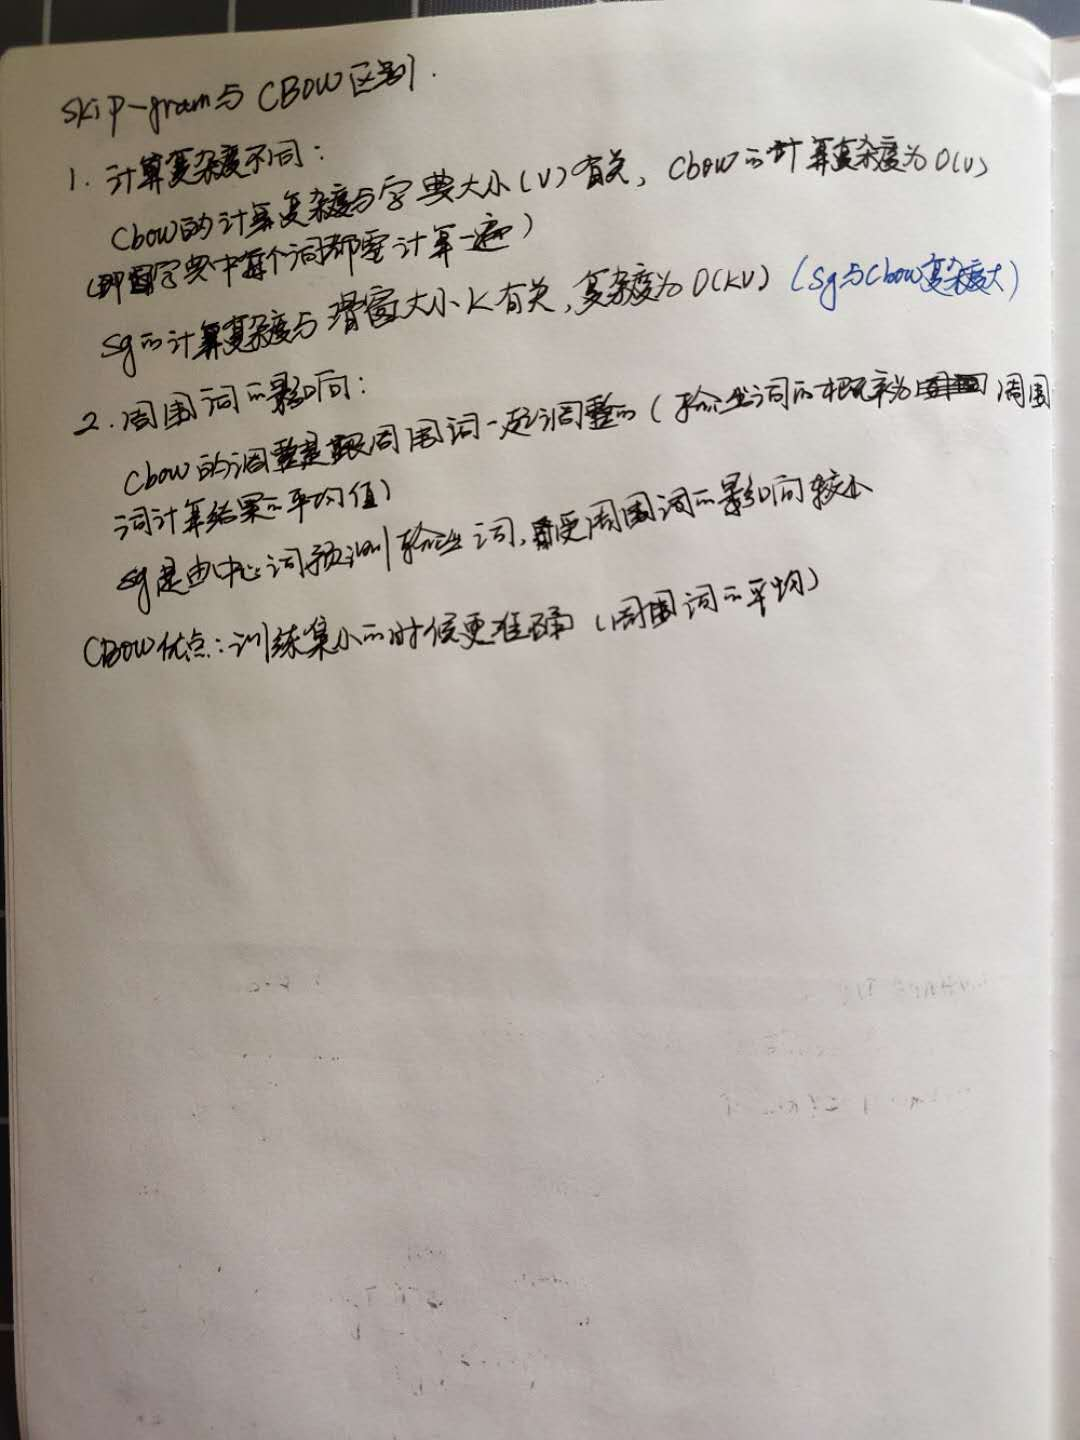 Skip-gram与CBOW区别.
1. 计算复杂度不同:
Cbow的计算复杂度与字典大小(V)有关, Cbow的计算复杂度为O(V)
(即字典中每个词都要计算一遍)
Sg的计算复杂度与滑窗大小K有关,复杂度为O(KV) (Sg与Cbow复杂度大)
2. 周围词的影响:
Cbow的调整是跟周围词一起调整的(输出词的概率为周围
词计算结果的平均值)
Sg是由中心词预测输出词,受周围词的影响较小
CBOW优点:训练集小的时候更准确(周围词的平均)